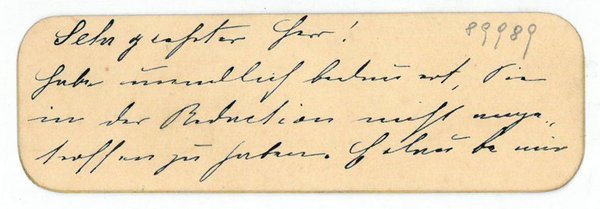 Sehr geehrter Herr!
89989
habe unendlich bedauert, Sie
in der Redaction nicht ange„
troffen zu haben. Erlaube mir